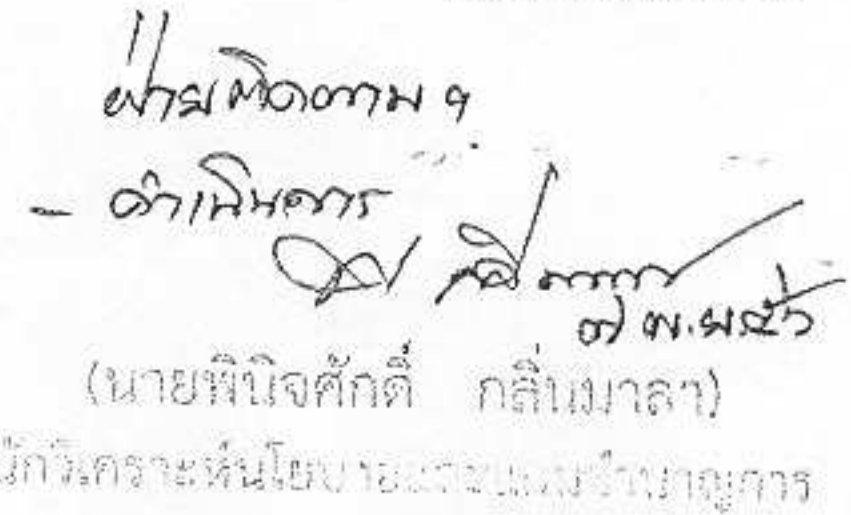 ฝ่ายติดตามฯ
- ดำเนินการ
๗ พ.ย. ๕๖
(นายพินิจศักดิ์ กลิ่นมาลา)
นักวิเคราะห์นโยบายและแผนชำนาญการ